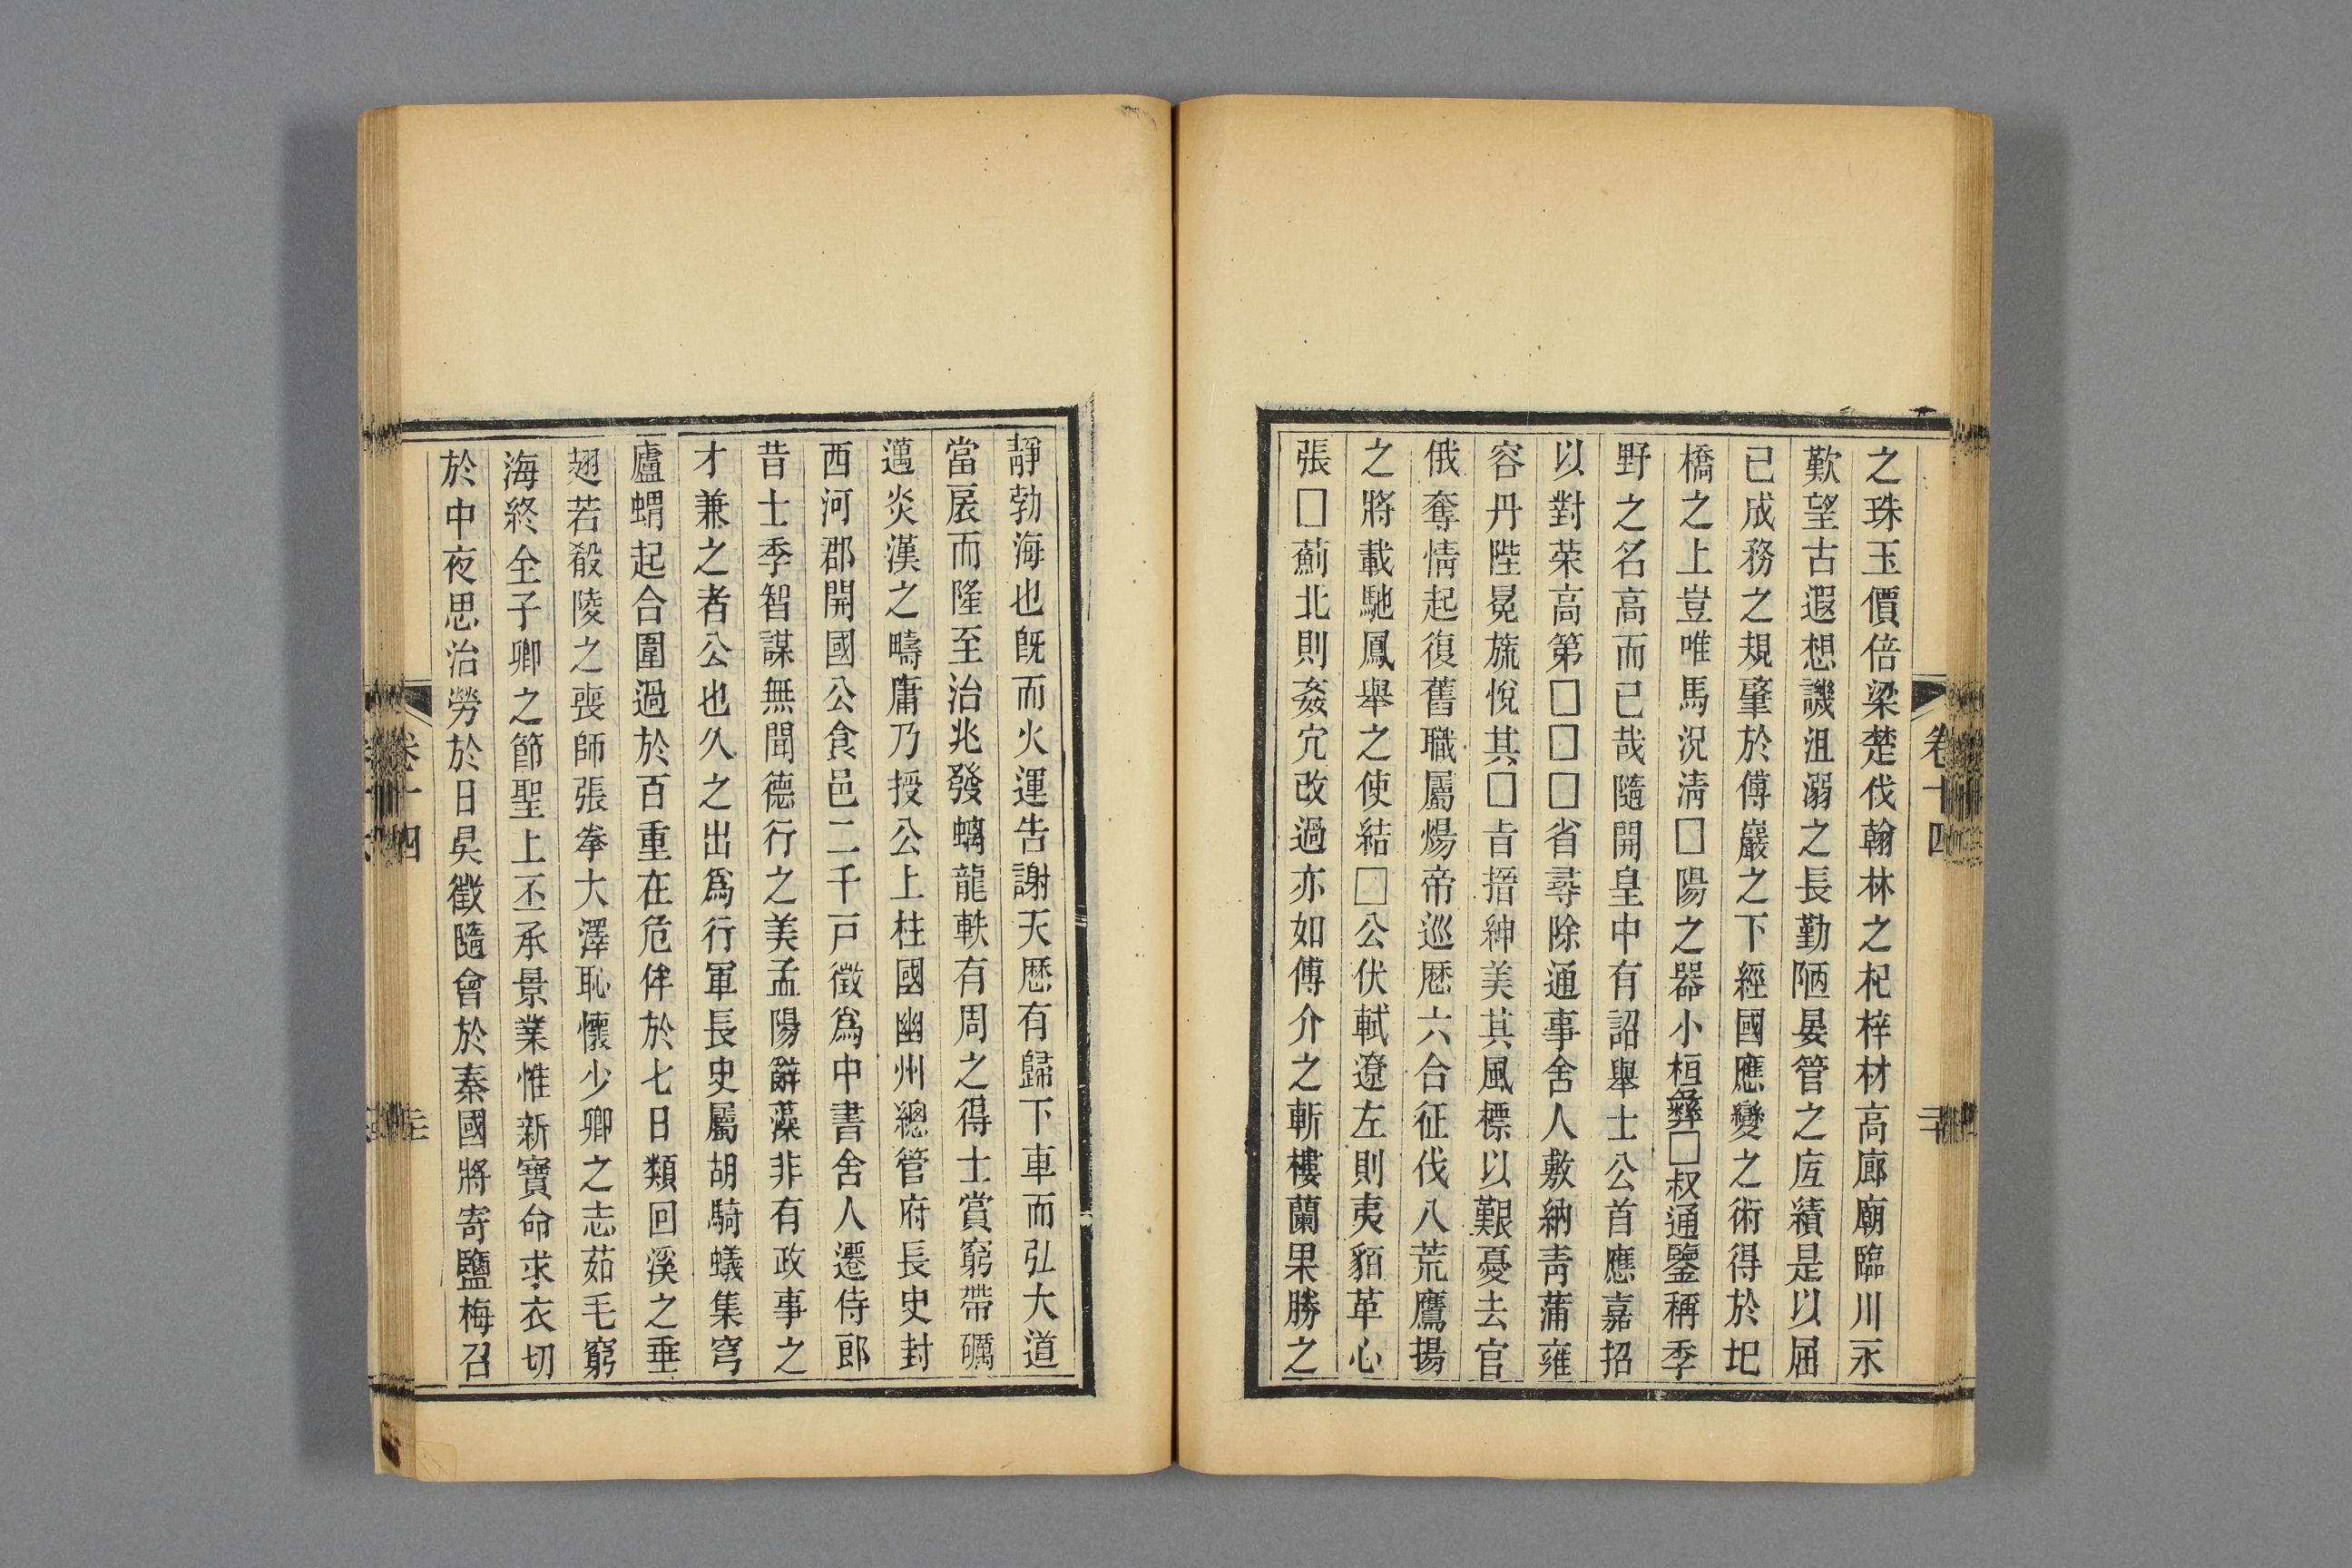 之珠玉價倍梁楚伐翰林之杞梓材高廊廟臨川永
歎望古遐想譏沮溺之長勤陋晏管之庻績是以屈
已成務之規肇於傅巖之下經國應變之術得於圯
橋之上豈唯馬況淸□陽之器小桓彝□叔通鑒稱季
野之名高而已哉隨開皇中有詔舉士公首應嘉招
以對荣高第□□□省尋除通事舍人敷納靑蒲雍
容丹陛冕旒悅其□㫖搢紳美其風標以艱憂去官
俄奪情起復舊職屬煬帝巡厯六合征伐八荒鷹揚
之將載馳鳳舉之使結□公伏軾遼左則夷貊革心
張□薊北則姦宄改過亦如傅介之斬樓蘭果勝之
靜勃海也旣而火運告謝天厯有歸下車而弘大道
當扆而隆至治兆發螭龍軼有周之得士賞窮帶礪
邁炎漢之疇庸乃授公上柱國幽州總管府長史封
西河郡開國公食邑二千戸徵爲中書舍人遷侍郎
昔士季智謀無聞德行之美孟陽辭藻非有政事之
才兼之者公也久之出爲行軍長史屬胡騎蟻集穹
廬蝟起合圍過於百重在危侔於七日類回溪之垂
翅若殽陵之喪師張拳大澤恥懷少卿之志茹毛窮
海終全子卿之節聖上丕承景業惟新寶命求衣切
於中夜思治勞於日昃徵隨會於秦國將寄鹽梅召
卷十四
卷十四